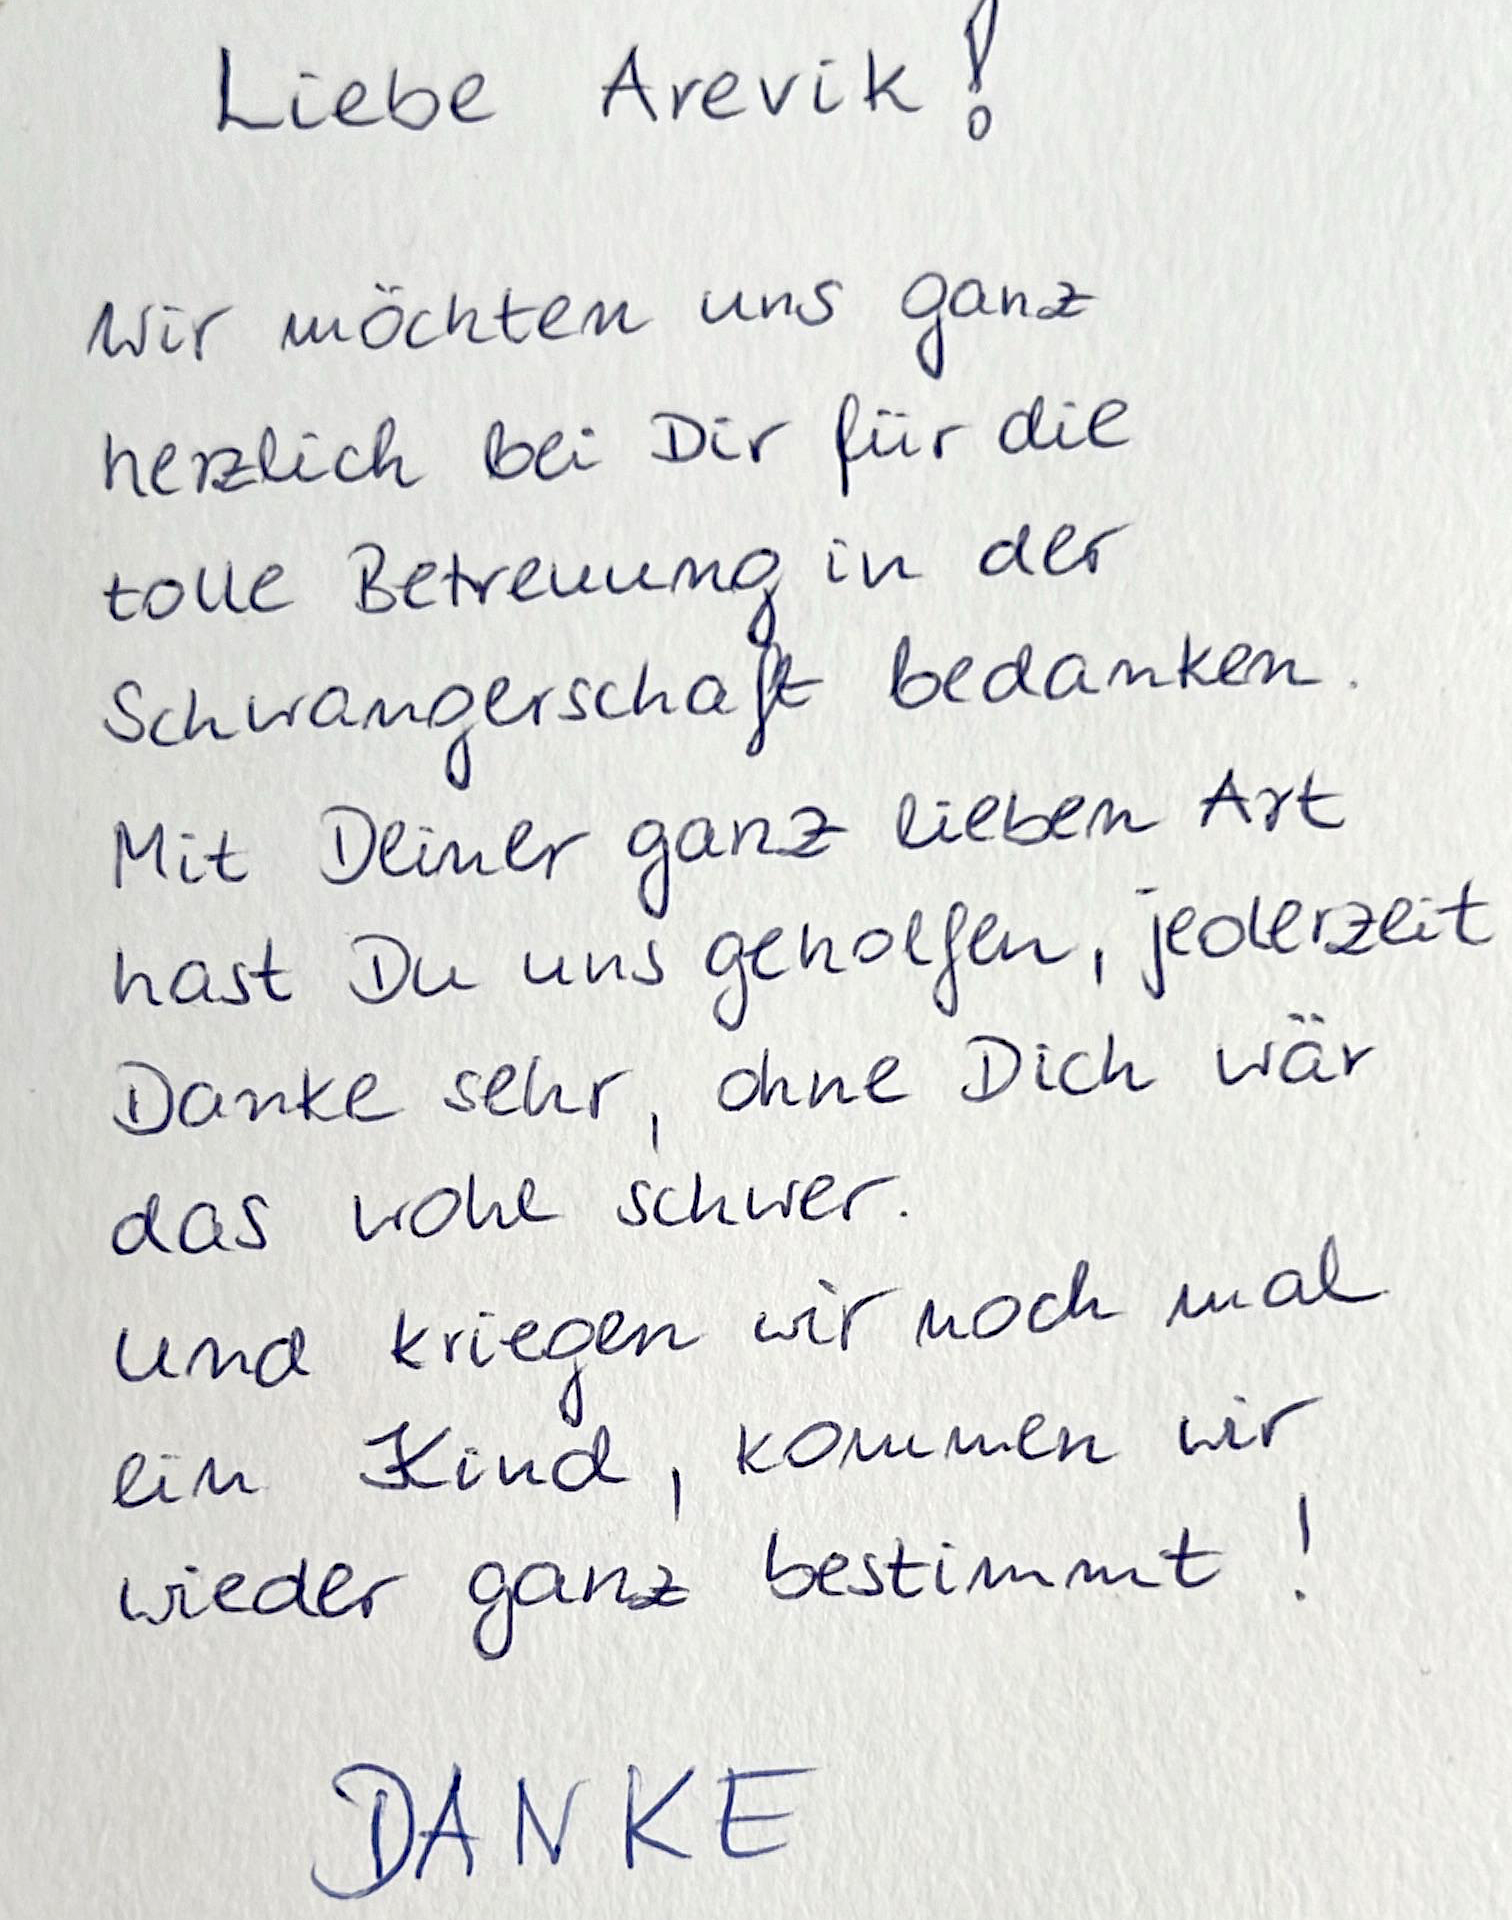 Liebe Arevik!
Wir möchten uns ganz
herzlich bei Dir für die
tolle Betreuung in der
Schwangerschaft bedanken.
Mit Deiner ganz lieben Art
hast Du uns geholfen, jederzeit
Danke sehr, ohne Dich wär
das wohl schwer.
Und kriegen wir noch mal
ein Kind, kommen wir
wieder ganz bestimmt!
DANKE